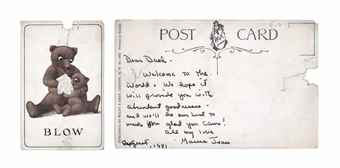 BLOW
POST CARD
Dear Dush.
Welcome to the
World. We hope it
will provide you with
abundant goodness -
and we'll do our best to
make you glad you came!
all my love
August, 1981